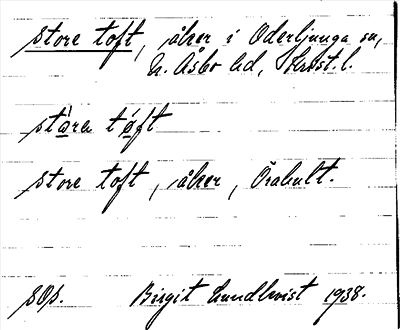 store toft, åker i Oderljunga sn,
N. Åsbo hd, Krist. l.
stàra tóft
store toft, åker, Örahult.
sOs. Birgit Lundkvist 1938.